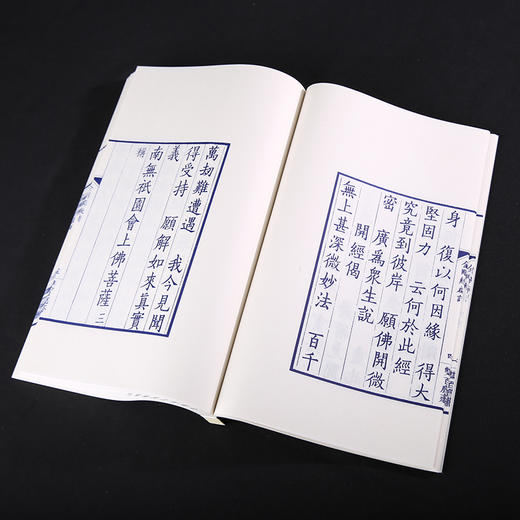 身　復以何因緣　得大
堅固力　云何於此經
究竟到彼岸　願佛開微
密　廣爲衆生說
開經偈
無上甚深微妙法　百千
萬劫難遭遇　我今見聞
得受持　願解如來真實
義
南無祇園會上佛菩薩三
稱